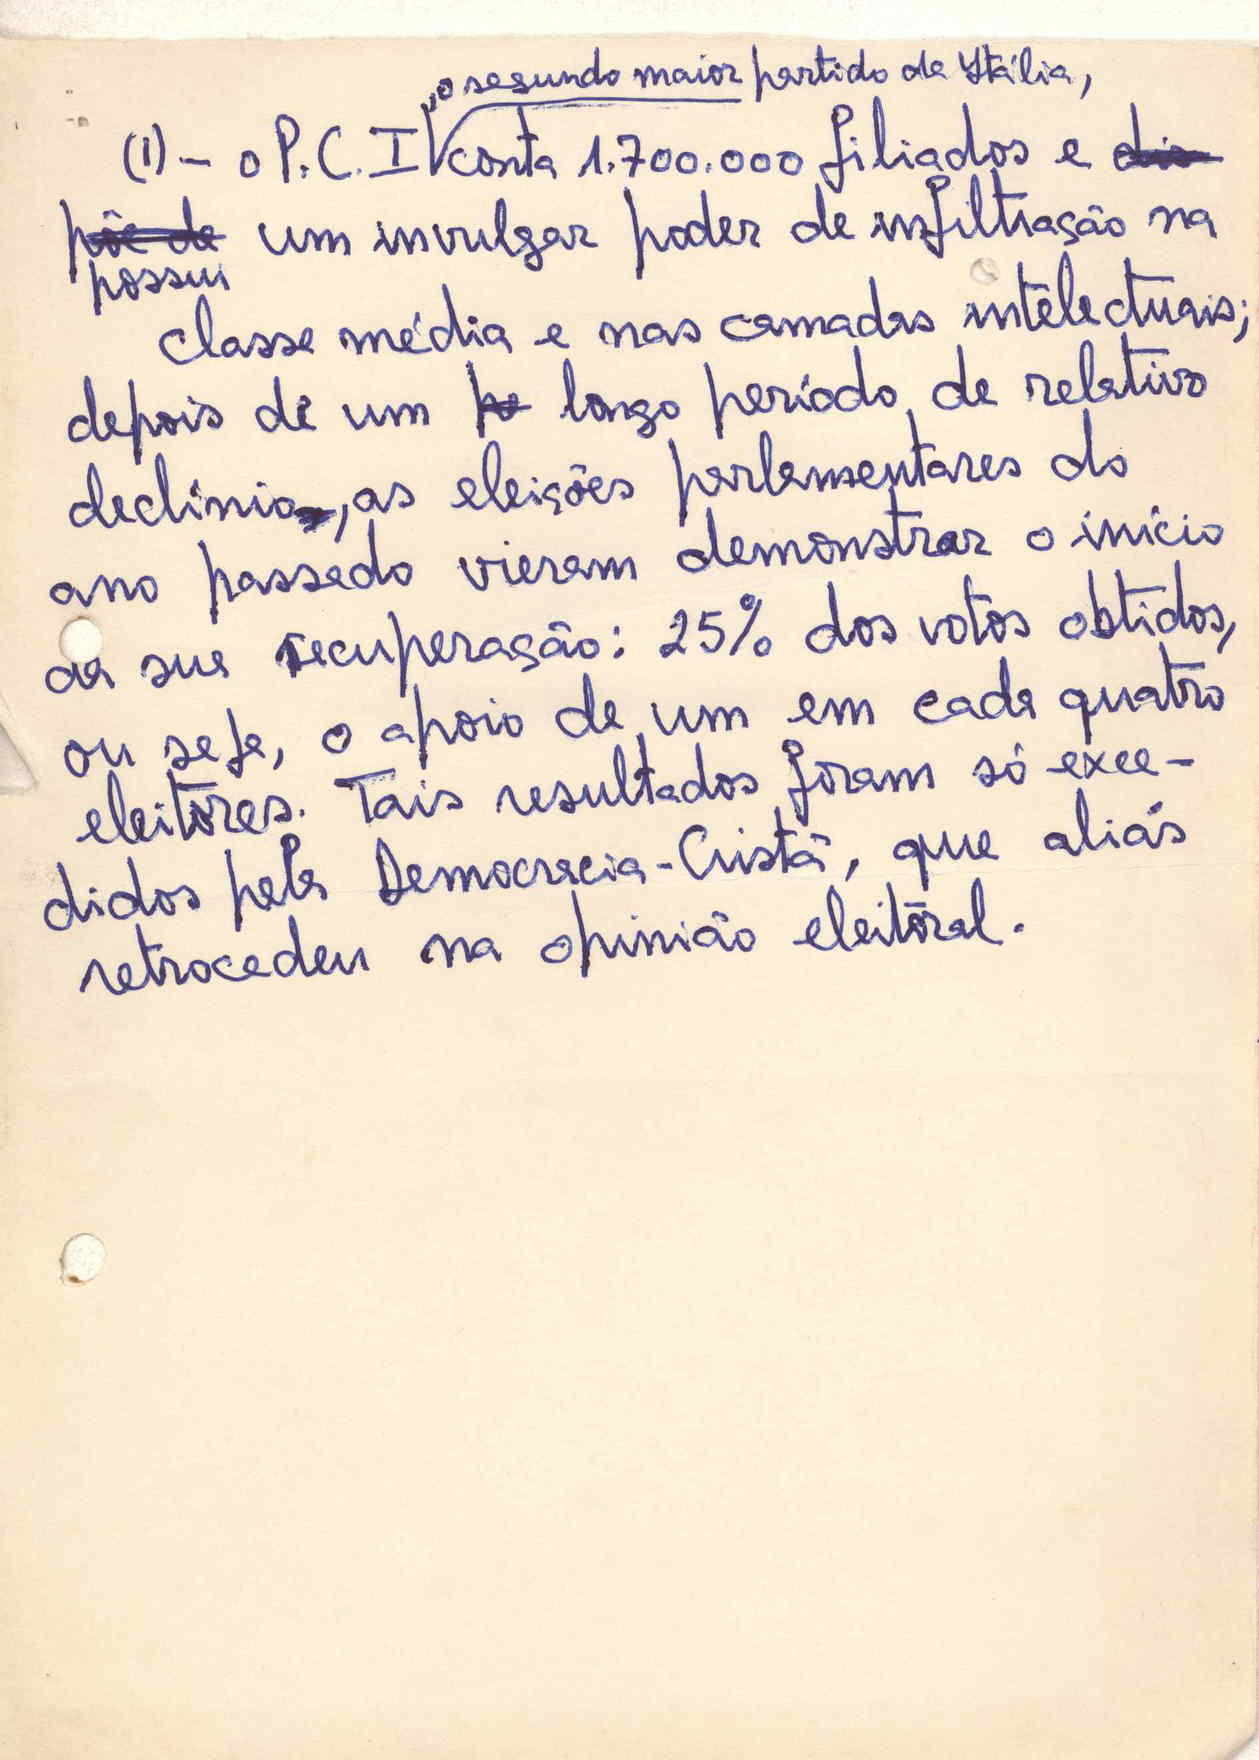 , o segundo maior partido da Itália,
(1) - o P.C.I conta 1.700.000 filiados e dis-
põe de um invulgar poder de infiltração na
possui
classe média e nas camadas intelectuais;
depois de um pe longo período de relativo
declínio, as eleições parlamentares do
ano passado vieram demonstrar o início
da sua recuperação: 25% dos votos obtidos,
ou seja, o apoio de um em cada quatro
eleitores. Tais resultados foram só exce-
didos pela Democracia-Cristã, que aliás
retrocedeu na opinião eleitoral.